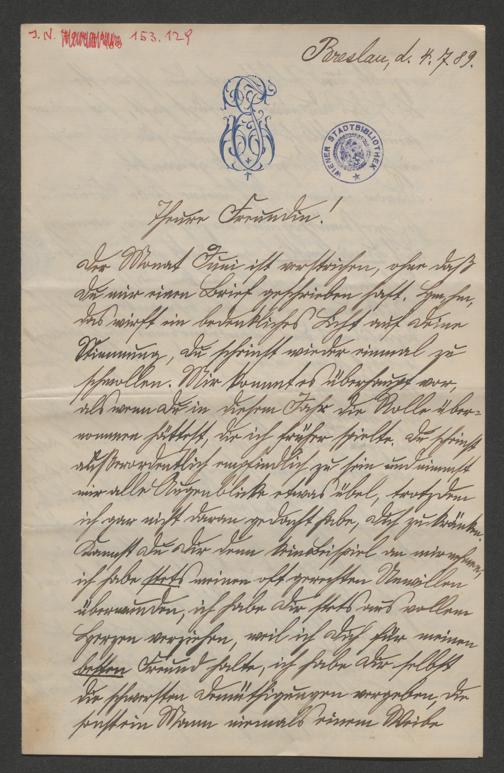 J. N. 153.129
Breslau, d. 4. 7. 89.
WIENER STADTBIBLIOTHEK
Theure Freundin!
Der Monat Juni ist verstrichen, ohne daß
Du mir einen Brief geschrieben hast. Hm, hm,
das wirft ein bedenkliches Licht auf Deine
Stimmung, Du scheinst wieder einmal zu
schmollen. Mir kommt es überhaupt vor,
als wenn Du in diesem Jahr die Rolle über-
nommen hättest, die ich früher spielte. Du scheinst
außerordentlich empfindlich zu sein und nimmst
mir alle Augenblicke etwas übel, trotzdem
ich gar nicht daran gedacht habe, Dich zu kränken.
Kannst Du Dir denn kein Beispiel an mir nehmen,
ich habe stets meinen oft gerechten Unwillen
überwunden, ich habe Dir stets aus vollem
Herzen verziehen, weil ich Dich für meinen
besten Freund halte, ich habe Dir selbst
die schwersten Demüthigungen vergeben, die
sonst ein Mann niemals einem Weibe